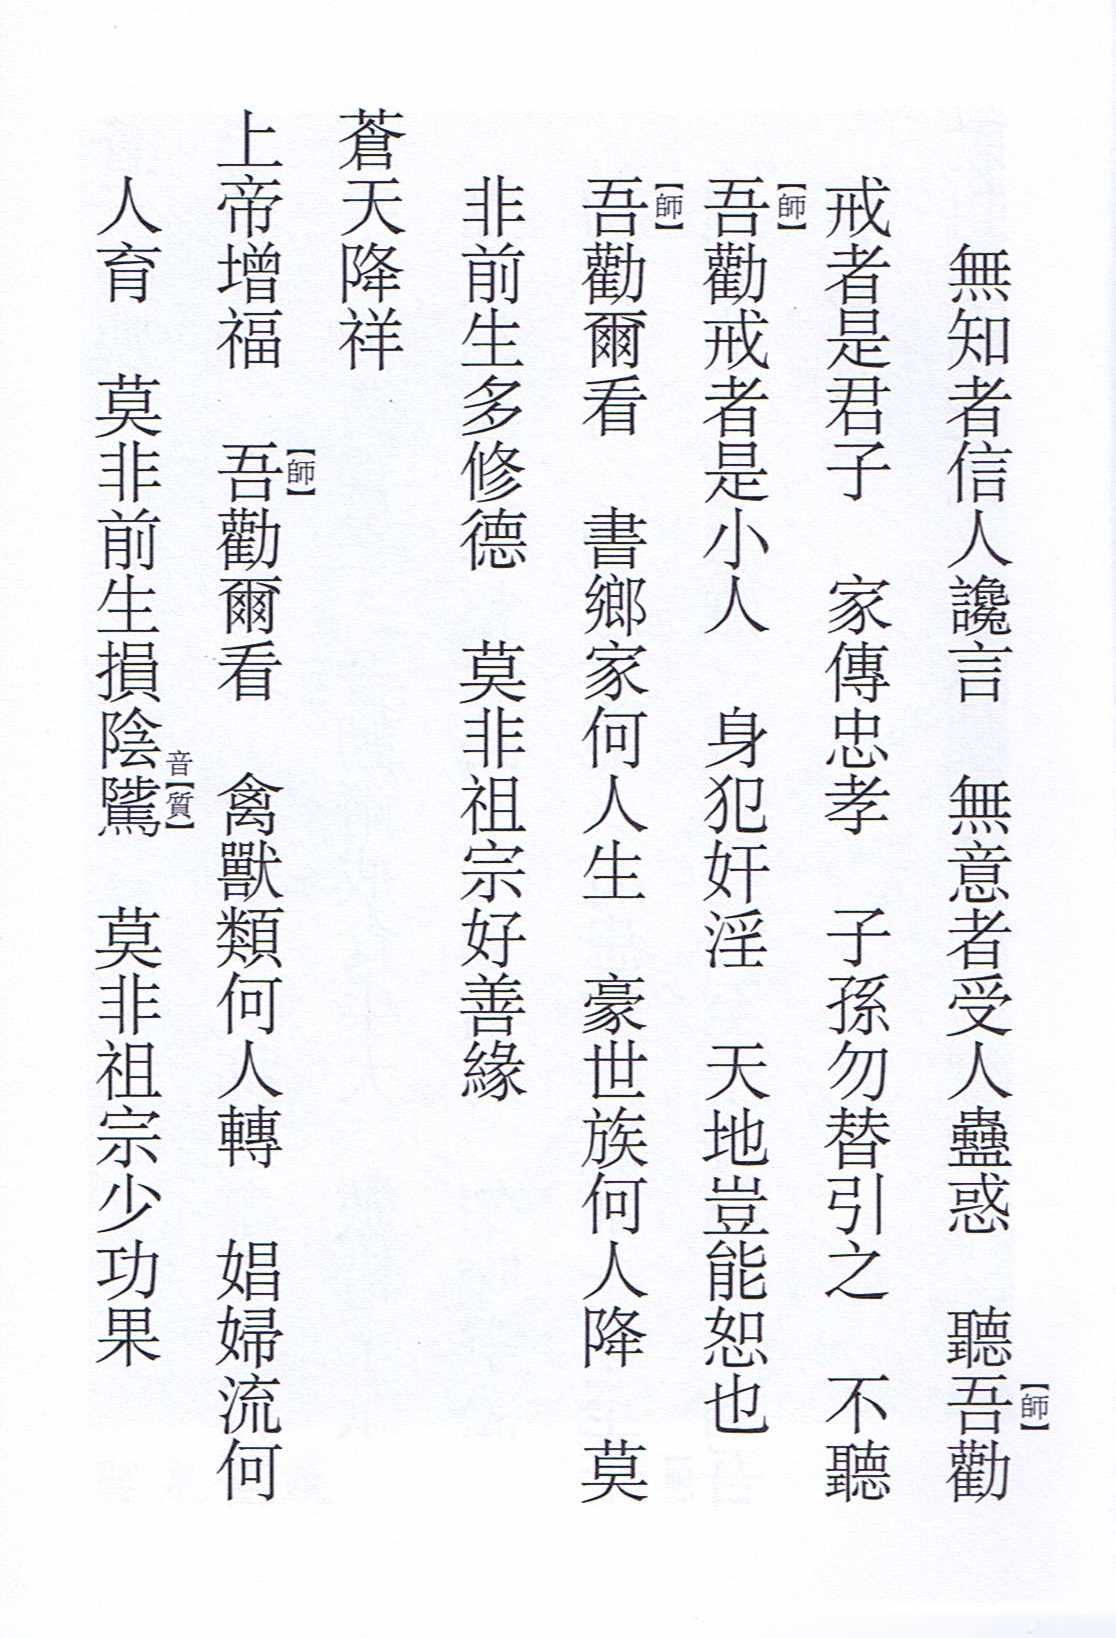 無知者信人讒言　無意者受人蠱惑　聽吾【師】勸
戒者是君子　家傳忠孝　子孫勿替引之　不聽
吾【師】勸戒者是小人　身犯奸淫　天地豈能恕也
吾【師】勸爾看　書鄉家何人生　豪世族何人降　莫
非前生多修德　莫非祖宗好善緣
蒼天降祥
上帝增福　吾【師】勸爾看　禽獸類何人轉　娼婦流何
人育　莫非前生損陰騭音【質】　莫非祖宗少功果